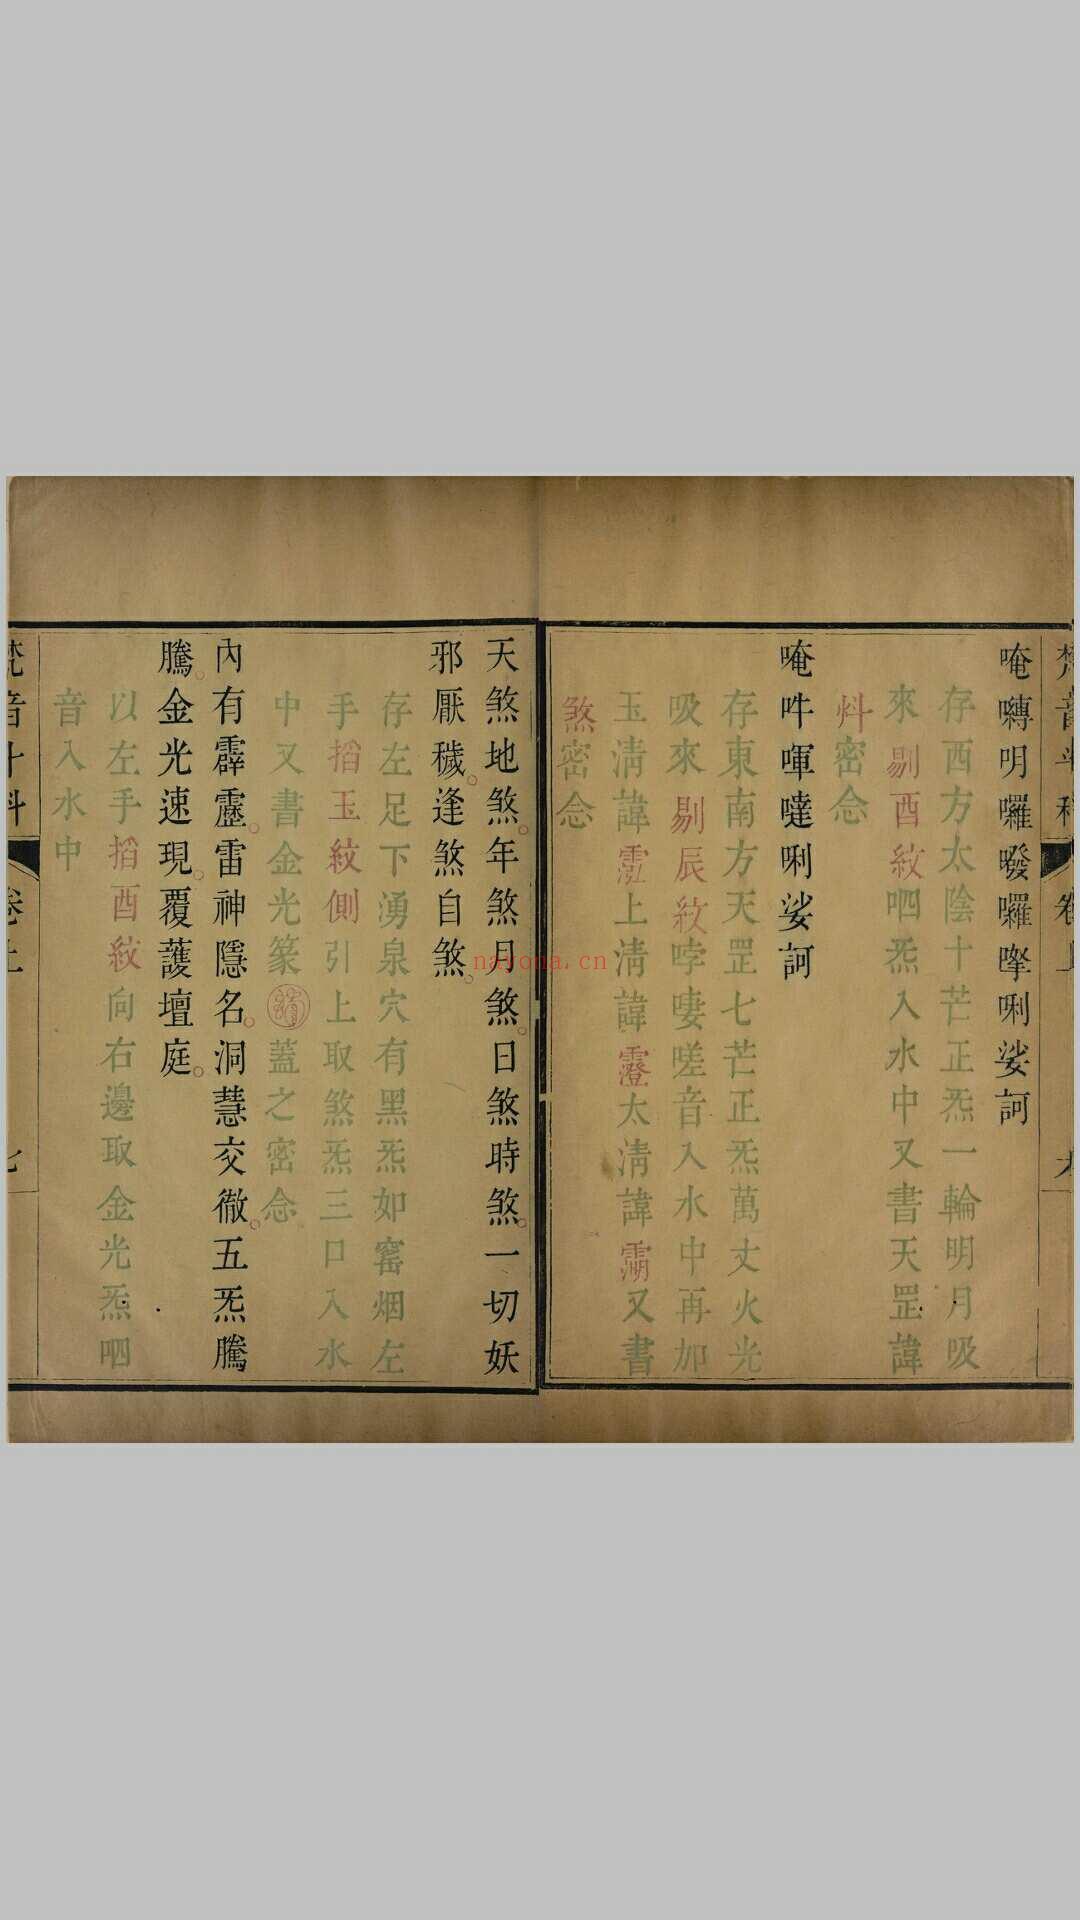 唵囀明囉㗶囉㘄唎娑訶
存西方太陰十芒正炁一輪明月吸
來剔酉紋呬炁入水中又書天罡諱
密念
唵吽㖷噠唎娑訶
存東南方天罡七芒正炁萬丈火光
吸來剔辰紋哱嘍嗟音入水中再加
玉淸諱上淸諱太淸諱又書
煞密念
天煞地煞。年煞月煞。日煞時煞。一切妖
邪厭穢。逢煞自煞。
存左足下湧泉穴有黑炁如窰烟左
手搯玉紋側引上取煞炁三口入水
中又書金光篆蓋之密念
內有霹靂。雷神隱名。洞慧交徹。五炁騰
騰。金光速現。覆護壇庭。
以左手搯酉紋向右邊取金光炁呬
音入水中
梵音斗科
nayona.cn